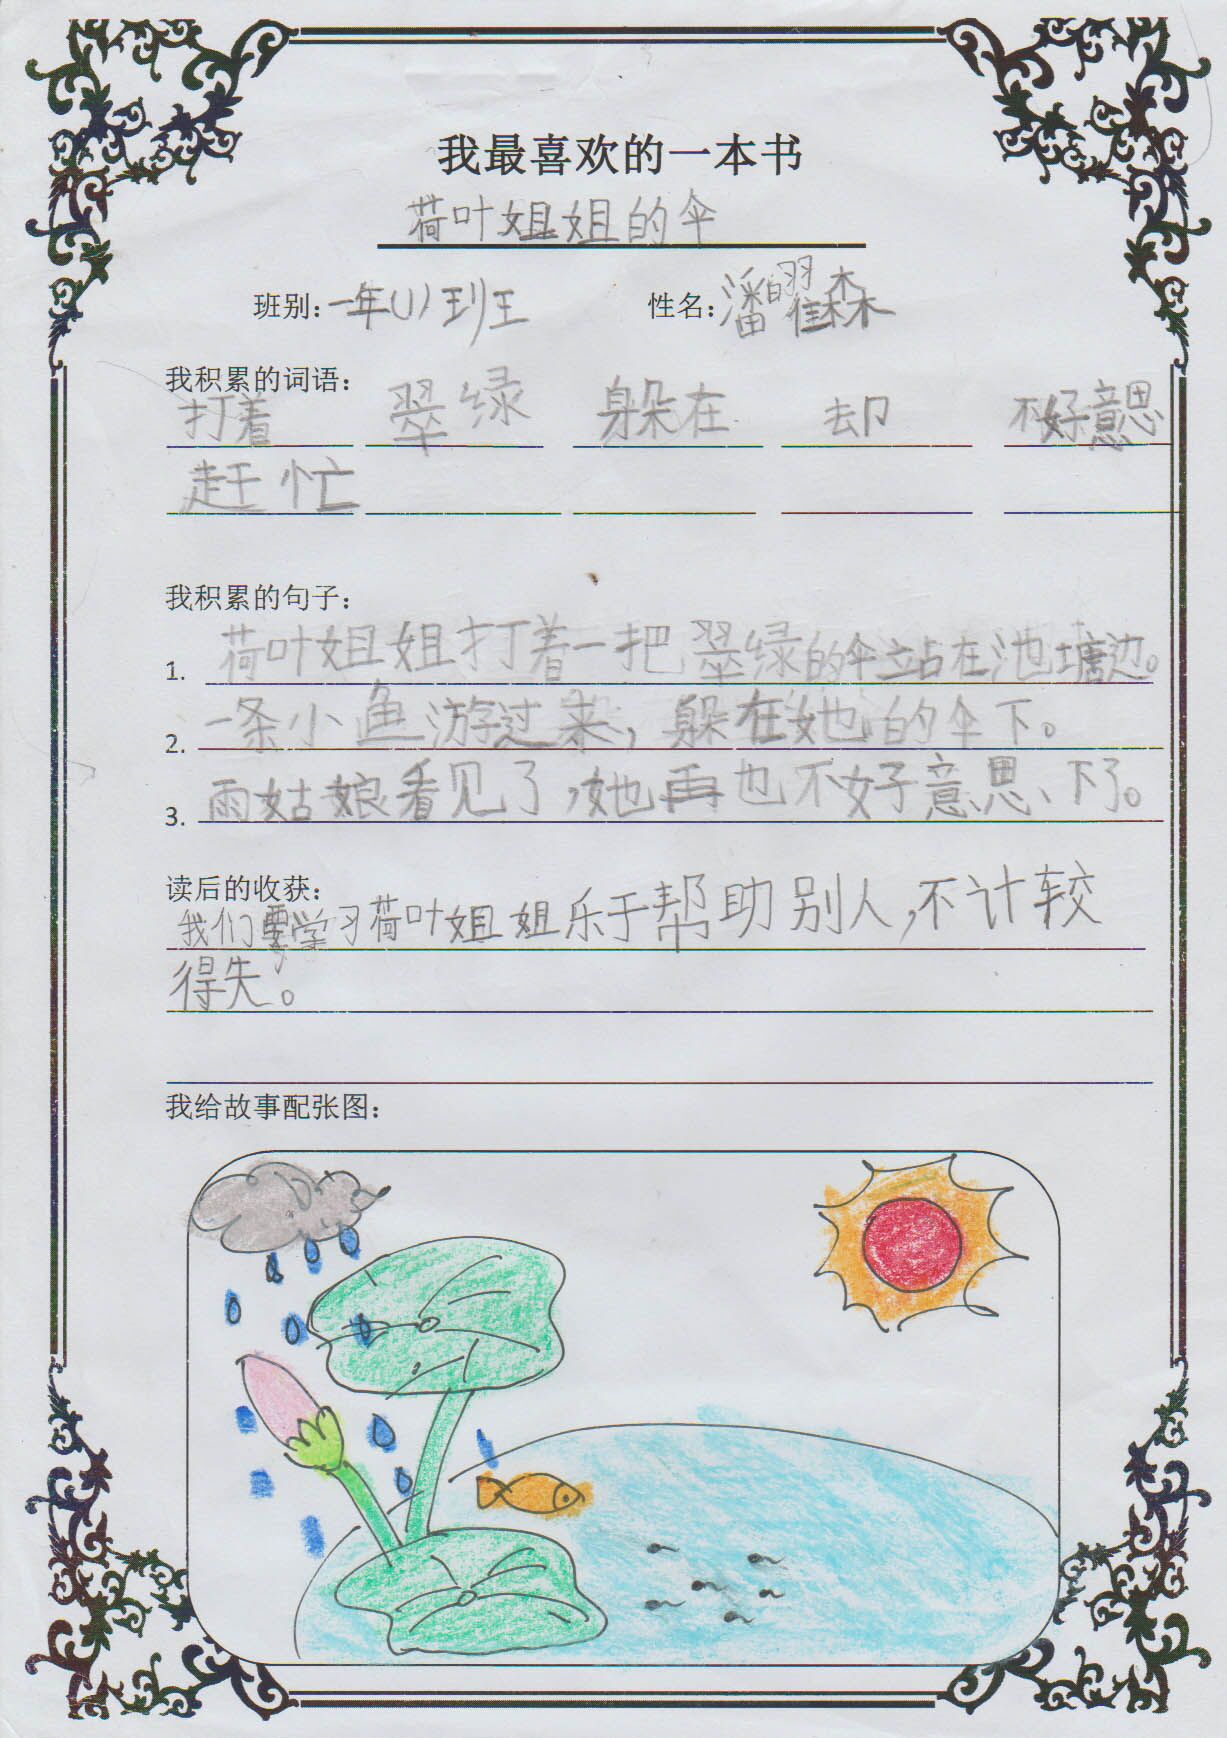 我最喜欢的一本书
荷叶姐姐的伞
班别:一年(1)班 性名:潘曜森
我积累的词语:
打着 翠绿 躲在 却 不好意思
赶忙
我积累的句子:
1. 荷叶姐姐打着一把翠绿的伞立站在池塘边。
2. 一条小鱼游过来,躲在她的伞下。
3. 雨姑娘看见了,她再也不好意思、下了。
读后的收获:
我们要学习荷叶姐姐乐于帮助别人,不计较
得失。
我给故事配张图: